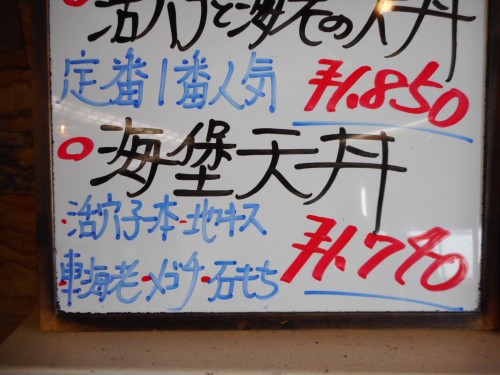 活穴子と海老の天丼
定番1番人気 ¥1.850
海堡天丼
・活穴子一本・地キス
・車海老・メゴチ・石もち ¥1.740